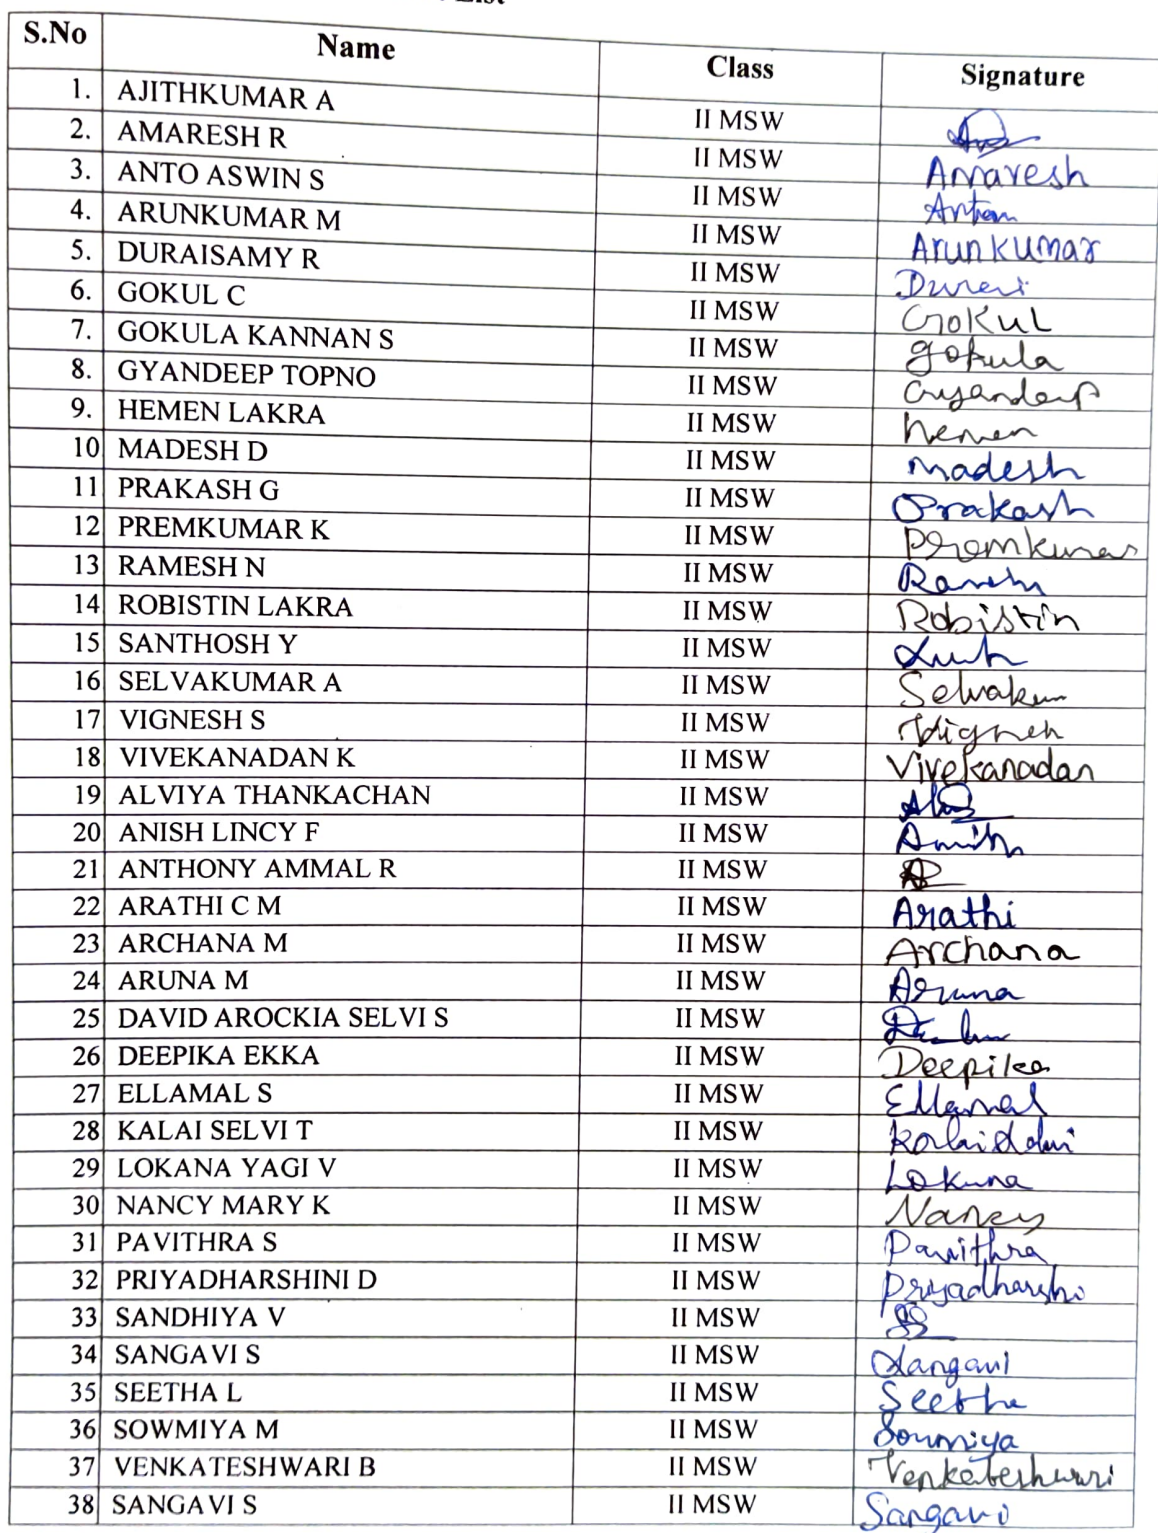 List
S.No Name Class Signature
1. AJITHKUMAR A II MSW
2. AMARESH R II MSW Amaresh
3. ANTO ASWIN S II MSW
4. ARUNKUMAR M II MSW Arunkumar
5. DURAISAMY R II MSW Durai
6. GOKUL C II MSW GOKUL
7. GOKULA KANNAN S II MSW gokula
8. GYANDEEP TOPNO II MSW Gyandeep
9. HEMEN LAKRA II MSW hemen
10 MADESH D II MSW madesh
11 PRAKASH G II MSW Prakash
12 PREMKUMAR K II MSW Premkumar
13 RAMESH N II MSW Ramesh
14 ROBISTIN LAKRA II MSW Robistin
15 SANTHOSH Y II MSW
16 SELVAKUMAR A II MSW Selvakum
17 VIGNESH S II MSW Vignesh
18 VIVEKANADAN K II MSW Vivekanadan
19 ALVIYA THANKACHAN II MSW
20 ANISH LINCY F II MSW
21 ANTHONY AMMAL R II MSW
22 ARATHI C M II MSW Arathi
23 ARCHANA M II MSW Archana
24 ARUNA M II MSW Aruna
25 DAVID AROCKIA SELVI S II MSW
26 DEEPIKA EKKA II MSW Deepika
27 ELLAMAL S II MSW Ellamal
28 KALAI SELVI T II MSW Kalaiselvi
29 LOKANA YAGI V II MSW Lokana
30 NANCY MARY K II MSW Nancy
31 PAVITHRA S II MSW Pavithra
32 PRIYADHARSHINI D II MSW Priyadharshi
33 SANDHIYA V II MSW
34 SANGAVI S II MSW Sangavi
35 SEETHA L II MSW Seetha
36 SOWMIYA M II MSW Soumiya
37 VENKATESHWARI B II MSW Venkateshwari
38 SANGAVI S II MSW Sangavi